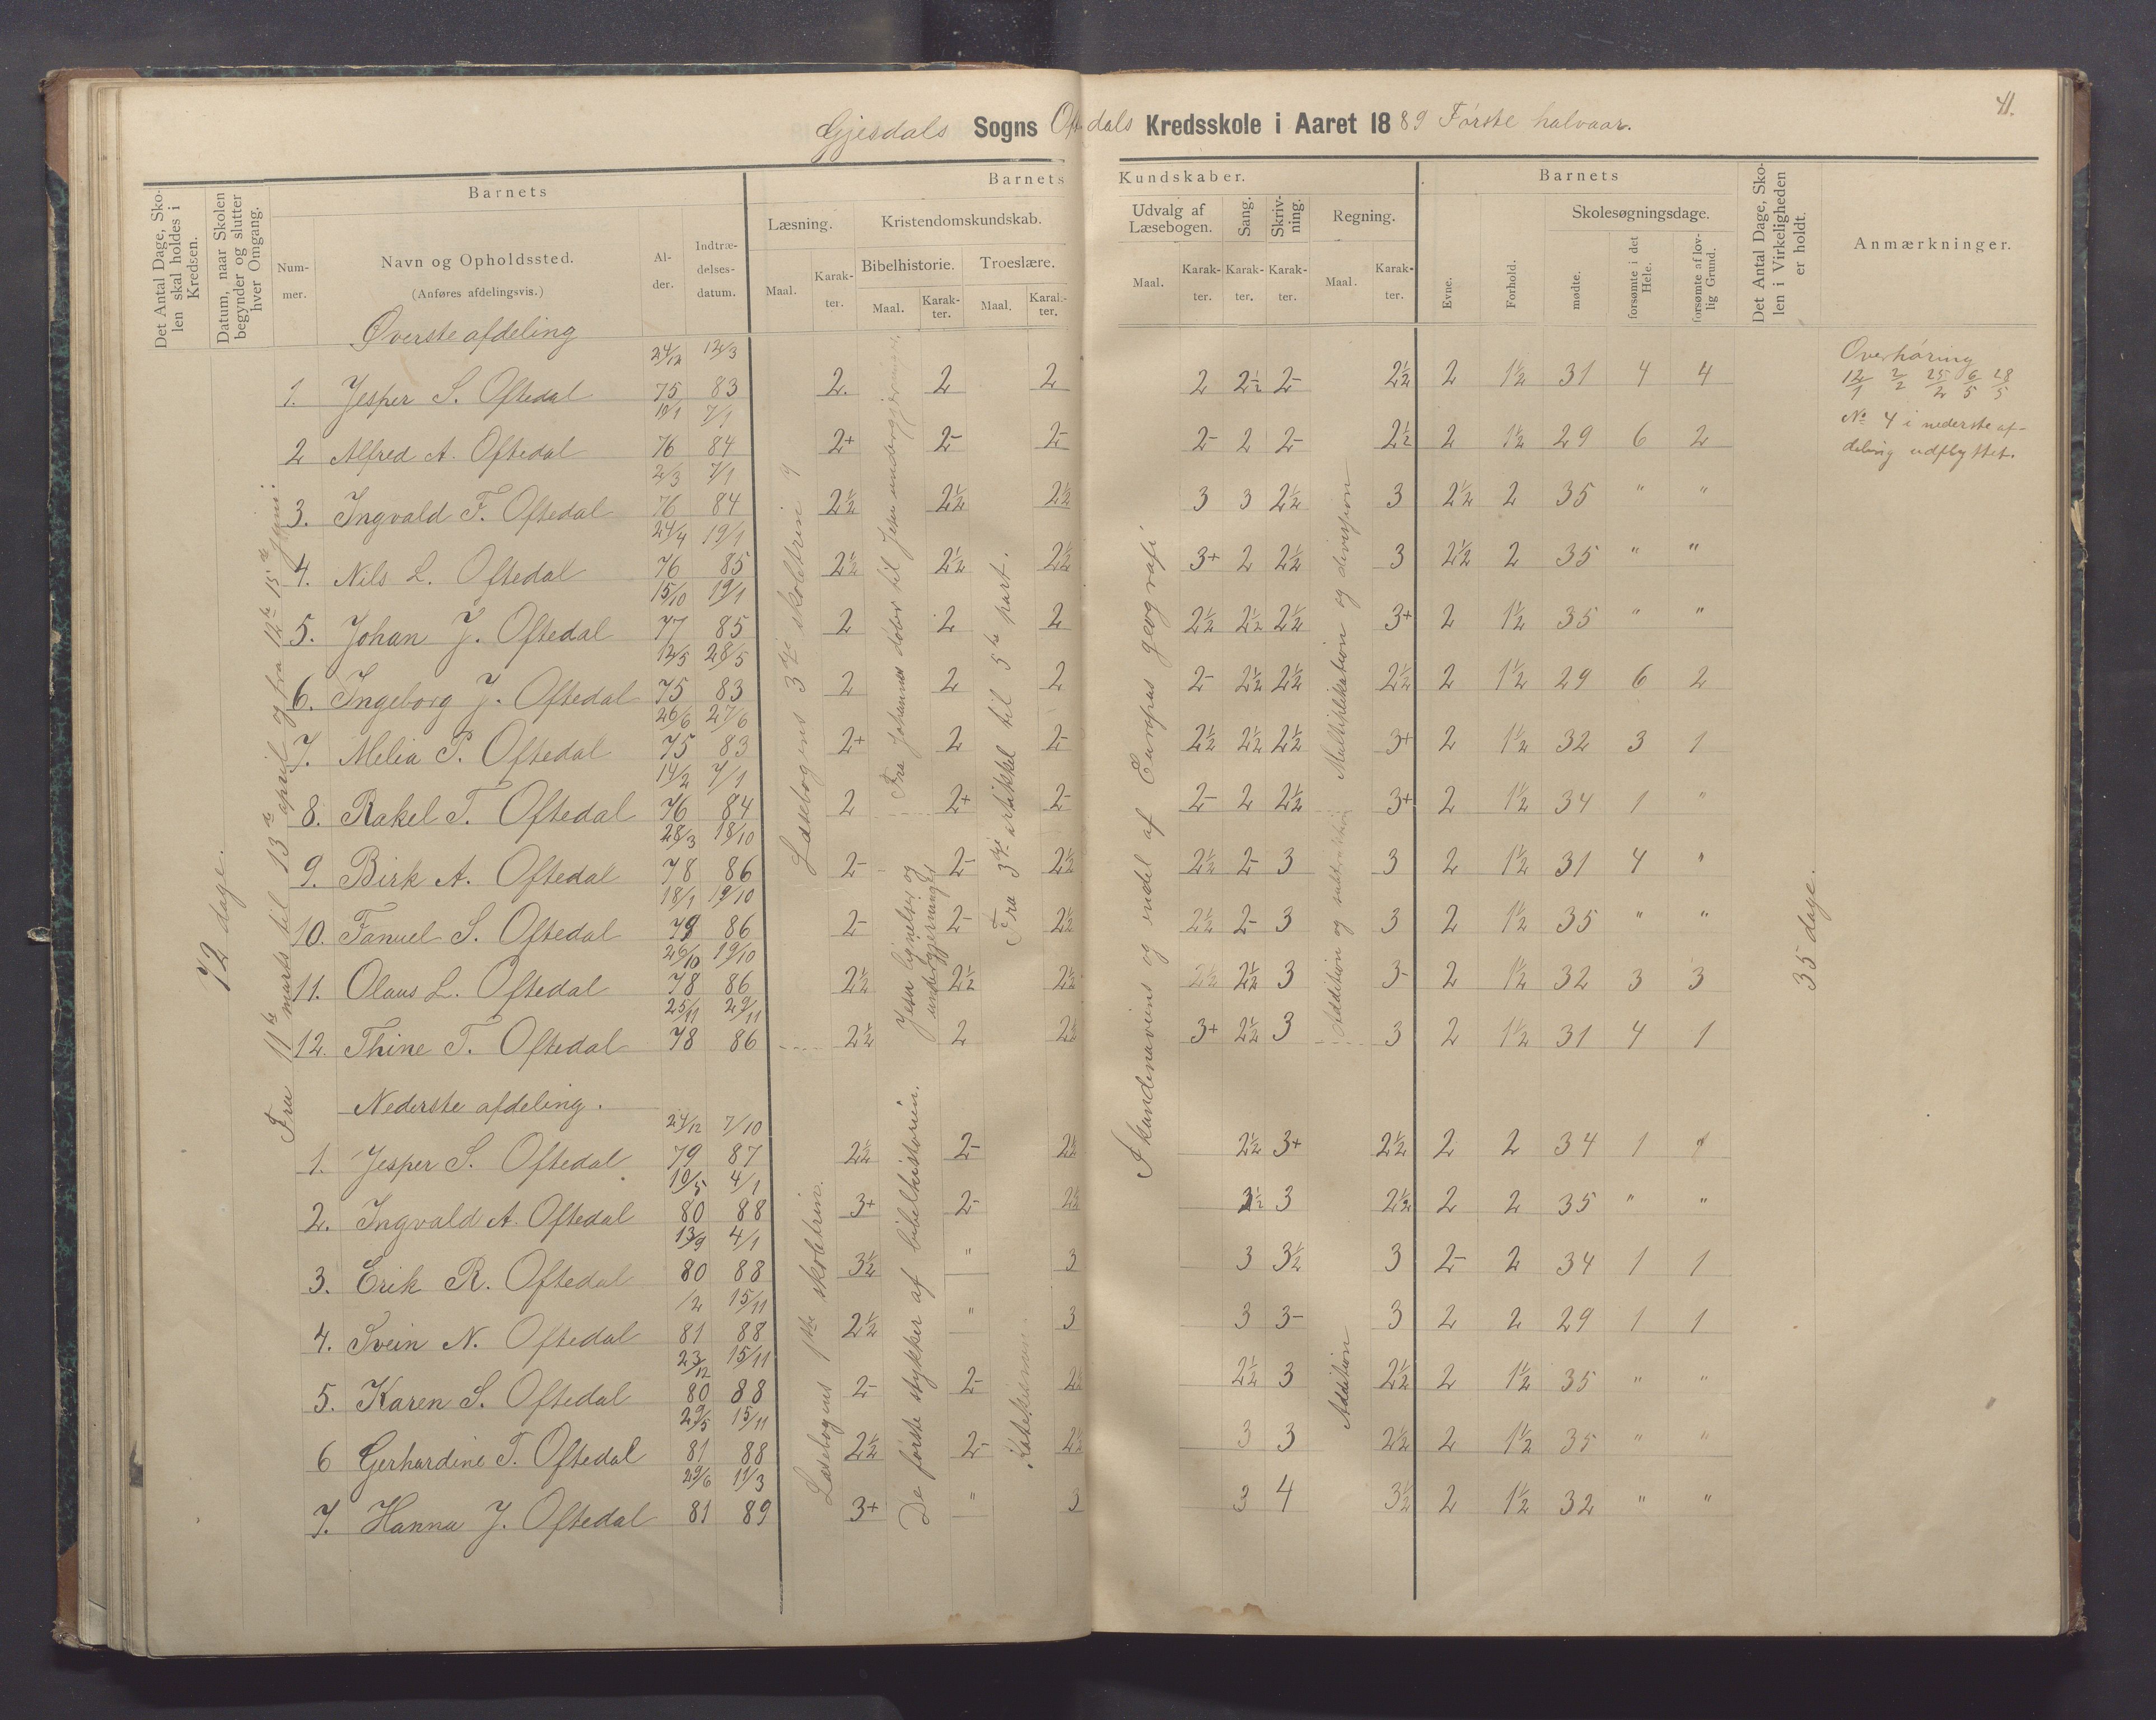 41.
Gjesdals Sogns Oftedals Kredsskole i Aaret 1889 Første halvaar.
Det Antal Dage, Skolen skal holdes i Kredsen.
Datum, naar Skolen begynder og slutter hver Omgang.
Barnets
Nummer.
Navn og Opholdssted.
(Anføres afdelingsvis.)
Alder.
Indtrædelsesdatum.
Barnets Kundskaber.
Læsning.
Maal. Karakter.
Kristendomskundskab.
Bibelhistorie. Troeslære.
Maal. Karakter. Maal. Karakter.
Udvalg af Læsebogen.
Maal. Karakter.
Sang. Karakter.
Skrivning. Karakter.
Regning.
Maal. Karakter.
Barnets
Evne.
Forhold.
Skolesøgningsdage.
mødte.
forsømte i det Hele.
forsømte af lovlig Grund.
Det Antal Dage, Skolen i Virkeligheden er holdt.
Anmærkninger.
72 dage.
Fra 11te marts til 13de april og fra 12te 15de juni.
Øverste afdeling
1. Jesper S. Oftedal 24/12 75 12/3 83 2. 2 2 2 2½ 2- 2½ 2 1½ 31 4 4
2 Alfred A. Oftedal 10/1 76 7/1 84 2+ 2- 2- 2- 2 2- 2½ 2 1½ 29 6 2
3. Ingvald F. Oftedal 2/3 76 7/1 84 2½ 2½ 2½ 3 3 2½ 3 2½ 2 35 " "
4. Nils L. Oftedal 24/4 76 19/1 85 2½ 2½ 2½ 3+ 2 2½ 3 2½ 2 35 " "
5. Johan J. Oftedal 15/10 77 19/1 85 2 2 2 2½ 2½ 2½ 3+ 2 1½ 35 " "
6. Ingeborg J. Oftedal 12/5 75 28/5 83 2 2 2 2- 2½ 2½ 2½ 2 1½ 29 6 2
7. Melia P. Oftedal 26/6 75 27/6 83 2+ 2 2- 2½ 2½ 2½ 3+ 2 1½ 32 3 1
8. Rakel T. Oftedal 14/2 76 7/1 84 2 2+ 2- 2- 2 2½ 3+ 2 1½ 34 1 "
9. Birk A. Oftedal 28/3 78 18/10 86 2- 2- 2½ 2½ 2- 3 3 2 1½ 31 4 "
10. Fanuel S. Oftedal 18/1 79 19/10 86 2- 2- 2½ 2½ 2- 3 3 2 1½ 35 " "
11. Olaus L. Oftedal 26/10 78 19/10 86 2½ 2½ 2½ 2½ 2½ 3 3- 2 1½ 32 3 3
12. Thine T. Oftedal 25/11 78 29/11 86 2½ 2 2½ 3+ 2½ 3 3 2 1½ 31 4 1
Læsebogens 3dje skoletrin
Fra Johannes døber til Jesu undergjerninger.
Jesu lignelser og undergjerninger
Fra 3dje artikkel til 5te part.
Skandenaviens og endel af Europas geografi
Multiplikation og divisjion
Addition og subtraktion
35 dage.
Overhøring
12/1 2/2 25/2 6/5 28/5
No 4 i nederste af-
deling udflyttet.
Nederste afdeling.
1. Jesper S. Oftedal 24/12 79 7/10 87 2½ 2- 2½ 2½ 3+ 2½ 2 2 34 1
2. Ingvald A. Oftedal 10/5 80 4/1 88 3+ 2- 2½ 3 2½ 2 2 35 " "
3. Erik R. Oftedal 13/9 80 4/1 88 3½ " 3 3 3½ 3 2- 2 34 1 1
4. Svein N. Oftedal /2 81 15/11 88 2½ " 3 3 3- 3 2 2 29 1 1
5. Karen S. Oftedal 23/12 80 15/11 88 2- 2- 2½ 2½ 3 2½ 2 1½ 35 " "
6 Gerhardine T. Oftedal 29/5 81 15/11 88 2½ 2- 2½ 3 3 2½ 2 1½ 35 " "
7. Hanna J. Oftedal 29/6 81 11/3 89 3+ " 3 3 4 3½ 2 1½ 32 " "
Læsebogens 1ste skoletrin.
De første stykker af bibelhistorien.
Katekismen.
Addition